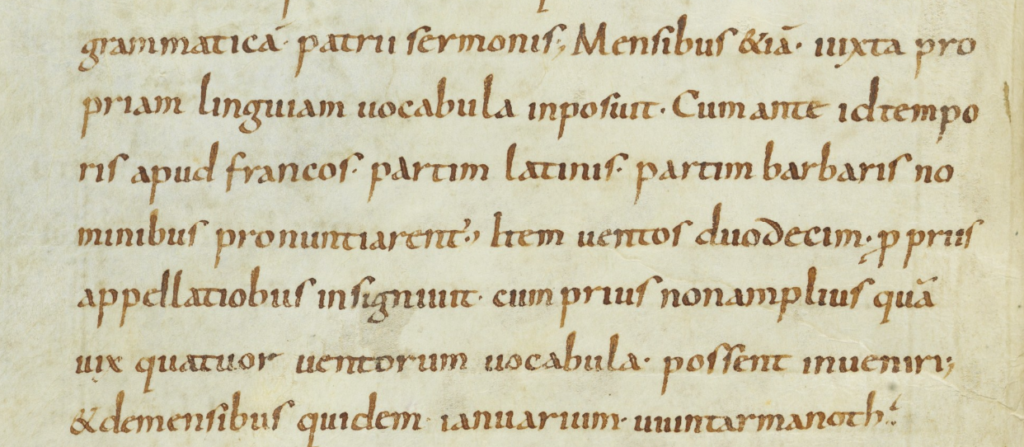 grammaticā· patrii sermonis; Mensibus &iā· iuxta pro
priam linguam uocabula inposuit· Cum ante id tempo
ris apud francos· partim latinis· partim barbaris no
minibus pronuntiarent; Item uentos duodecim· ꝓpriis
appellatiobus insigniuit· cum prius non amplius quā
uix quatuor uentorum uocabula· possent inueniri;
& de mensibus quidem· ianuarium· uuintarmanoth·